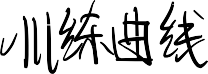 训练曲线